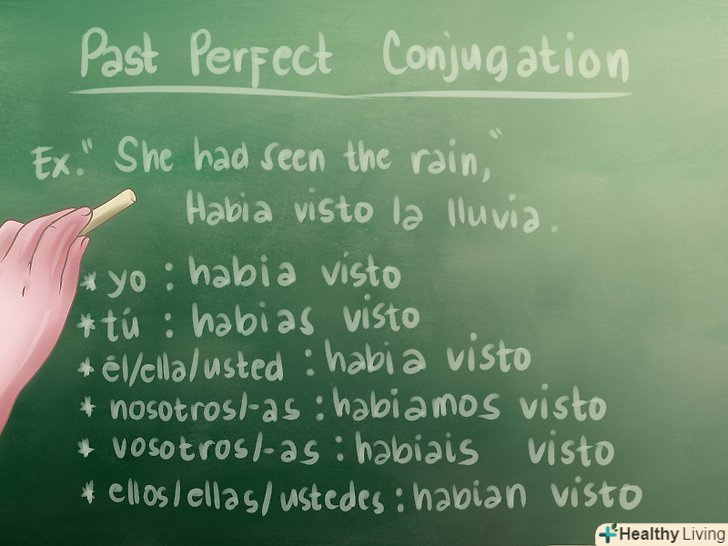 Past Perfect Conjugation
Ex." She had seen the rain,"
Habia visto la lluvia.
* yo : habia visto
* tú : habias visto
* él/ella/usted : habia visto
* nosotros/-as : habiamos visto
* vosotros/-as : habiais visto
* ellos/ellas/ustedes : habian visto
Healthy Living